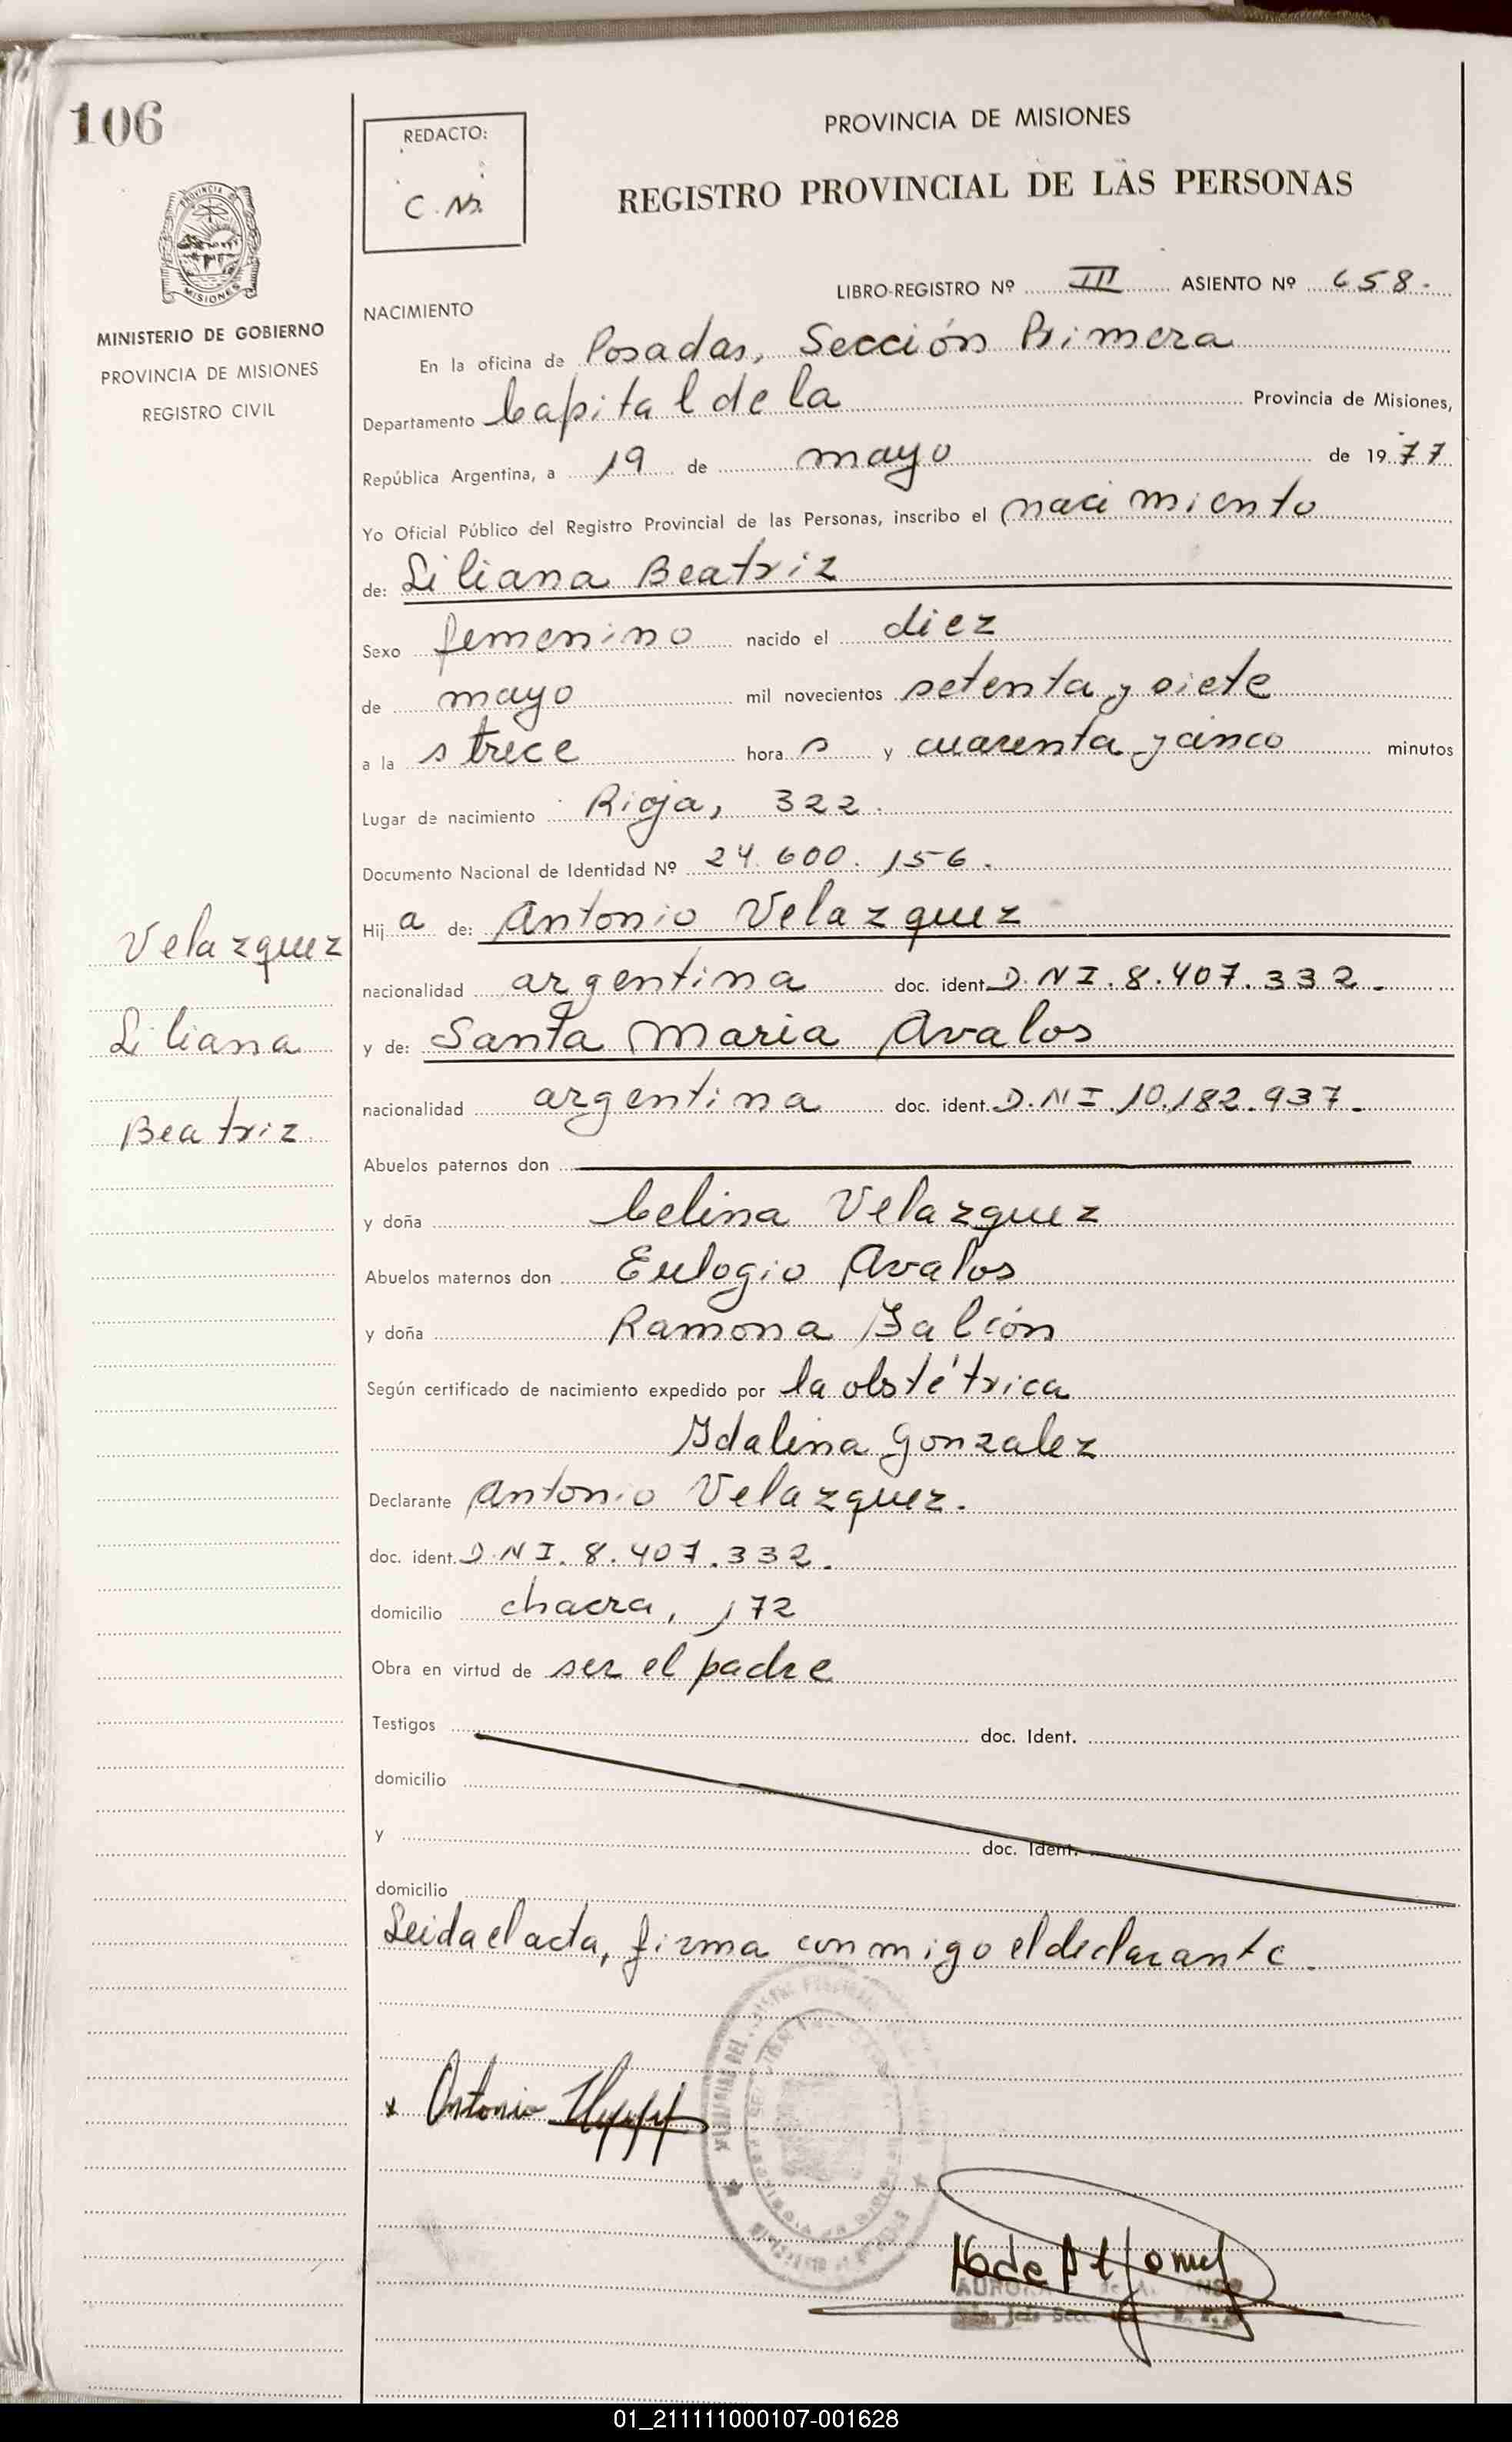 106
REDACTO:
C. N.
PROVINCIA DE MISIONES
REGISTRO PROVINCIAL DE LAS PERSONAS
PROVINCIA
MISIONES
MINISTERIO DE GOBIERNO
PROVINCIA DE MISIONES
REGISTRO CIVIL
LIBRO-REGISTRO Nº III ASIENTO Nº 658.
NACIMIENTO
En la oficina de Posadas, Sección Primera
Departamento Capital de la Provincia de Misiones,
República Argentina, a 19 de mayo de 1977
Yo Oficial Público del Registro Provincial de las Personas, inscribo el nacimiento
de: Liliana Beatriz
Sexo femenino nacido el diez
de mayo mil novecientos setenta y siete
a la s trece hora s y cuarenta y cinco minutos
Lugar de nacimiento Rioja, 322.
Documento Nacional de Identidad Nº 24.600.156.
Hij a de: Antonio Velazquez
nacionalidad argentina doc. ident. D.N.I. 8.407.332.
y de: Santa Maria Avalos
nacionalidad argentina doc. ident. D.N.I. 10.182.937.
Velazquez
Liliana
Beatriz
Abuelos paternos don
y doña Celina Velazquez
Abuelos maternos don Eulogio Avalos
y doña Ramona
Según certificado de nacimiento expedido por la obstétrica
Idalina Gonzalez
Declarante Antonio Velazquez.
doc. ident. D.N.I. 8.407.332.
domicilio chacra, 172
Obra en virtud de ser el padre
Testigos doc. Ident.
domicilio
y doc. Ident.
domicilio
Leida el acta, firma conmigo el declarante.
x Antonio
AURORA
01_211111000107-001628